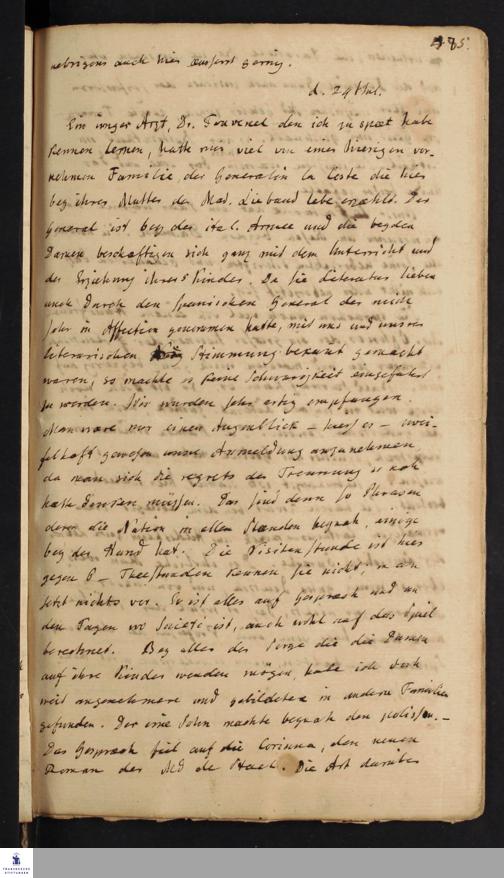 485.
uebrigens auch hier äusserst gering.
d. 24t
Ein junger Arzt, Dr. Touvenel den ich zu spaet habe
kennen lernen, hatte mir viel von einer hiesigen vor-
nehmen Familie, der Generalin la Coste die hier
bey ihrer Mutter der Mad. Liebaud lebe erzählt. Der
General ist bey der ital. Armee und die beyden
Damen beschäftigen sich ganz mit dem Unterricht und
der Erziehung ihrer Kinder. Da sie Literatur lieben
und durch den spanischen General der mich
sehr in Affection genommen hatte, mit uns und unsrer
literarischen Stimmung bekannt gemacht
waren, so machte es keine Schwierigkeit eingeführt
zu werden. Wir wurden sehr artig empfangen.
Man ware nur einen Augenblick – hiess es – zwei-
felhaft gewesen unsre Anmeldung anzunehmen
da man sich die regrets der Trennung so nah
hätte denken müssen. Das sind denn so Phrasen
deren die Nation in allen Staenden beynah, einige
bey der Hand hat. Die Visitenstunde ist hier
gegen 6 – Theestunden kennen sie nicht, man
setzt nichts vor. Es ist alles auf Gespräch und an
den Tagen wo Societé ist, auch wohl auf das Spiel
berechnet. Bey aller der Sorge die die Damen
auf ihre Kinder wenden mögen, habe ich doch
weit angenehmere und gebildetere in andern Familien
gefunden. Der eine Sohn machte beynah den –
Das Gespraech fiel auf die Corinna, den neuen
Roman der Md de Stael. Die Art darüber
FRANCKESCHE
STIFTUNGEN